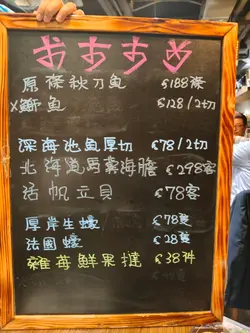 おすすめ
原條秋刀魚 $188條
X鰤魚 $128/2切
深海池魚厚切 $78/2切
北海道馬糞海膽 $298客
活帆立貝 $78客
厚岸生蠔 $78隻
法國蠔 $28隻
雜莓鮮果撻 $38件